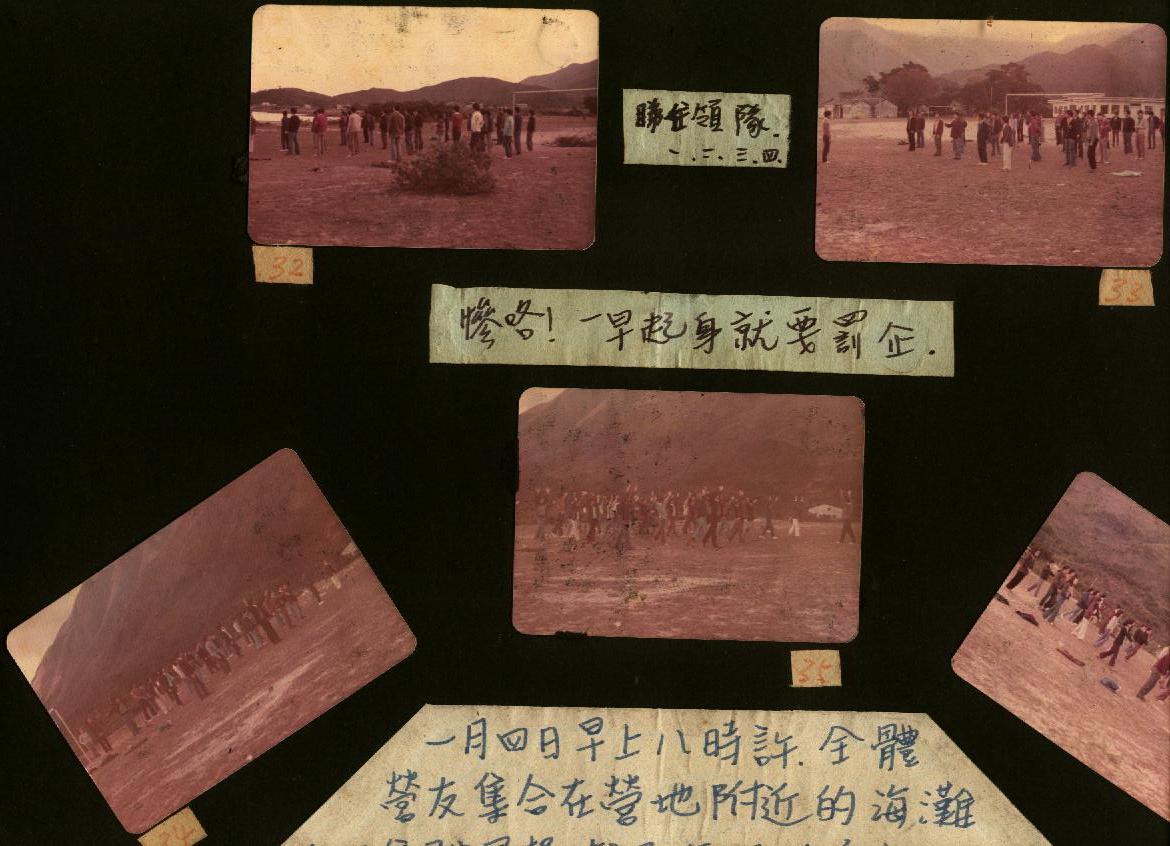 睇住領隊.
一.二.三.四.
32
33
慘咯！一早起身就要罰企.
35
34
一月四日早上八時許.全體
營友集合在營地附近的海灘